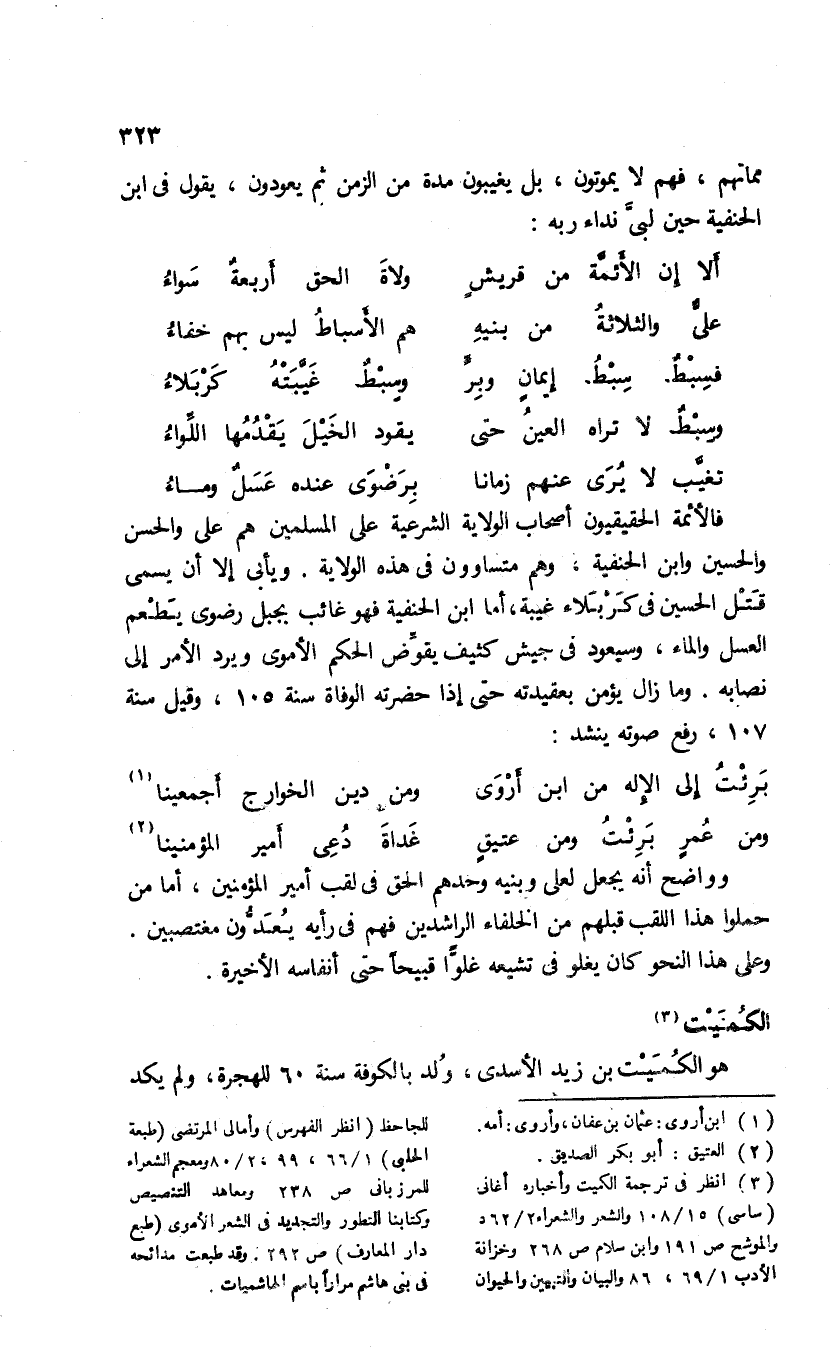 ٣٢٣
مماتهم ، فهم لا يموتون ، بل يغيبون مدة من الزمن ثم يعودون ، يقول فى ابن
الحنفية حين لبىَّ نداء ربه :
أَلا إن الأَئمَّة من قريشٍ ولاةَ الحق أَربعةٌ سَواءُ
علىٌّ والثلاثةُ من بنيهِ هم الأَسباطُ ليس بهم خفاءُ
فسِبْطٌ سِبْطُ إيمانٍ وبِرٍّ وسِبْطٌ غَيَّبَتْهُ كَرْبَلاءُ
وسِبْطٌ لا تراه العينُ حتى يقود الخَيْلَ يَقْدُمُها اللَّواءُ
تغيَّب لا يُرَى عنهم زمانا بِرَضْوَى عنده عَسَلٌ ومـاءُ
فالأئمة الحقيقيون أصحاب الولاية الشرعية على المسلمين هم على والحسن
والحسين وابن الحنفية ، وهم متساوون فى هذه الولاية . ويأبى إلا أن يسمى
قَتْل الحسين فى كَرْبَلاء غيبة ، أما ابن الحنفية فهو غائب بجبل رضوى يَطْعم
العسل والماء ، وسيعود فى جيش كثيف يقوِّض الحكم الأموى ويرد الأمر إلى
نصابه . وما زال يؤمن بعقيدته حتى إذا حضرته الوفاة سنة ١٠٥ ، وقيل سنة
١٠٧ ، رفع صوته ينشد :
بَرِئْتُ إلى الإله من ابن أَرْوَى ومن دين الخوارج أَجمعينا(١)
ومن عُمرٍ بَرِئْتُ ومن عتيقٍ غَداةَ دُعِى أَمير المؤمنينا(٢)
وواضح أنه يجعل لعلى وبنيه وحدهم الحق فى لقب أمير المؤمنين ، أما من
حملوا هذا اللقب قبلهم من الخلفاء الراشدين فهم فى رأيه يُعَدُّون مغتصبين .
وعلى هذا النحو كان يغلو فى تشيعه غلوًّا قبيحاً حتى أنفاسه الأخيرة .
الكُمَيْت (٣)
هو الكُمَيْت بن زيد الأسدى ، وُلد بالكوفة سنة ٦٠ للهجرة ، ولم يكد
(١) ابن أروى : عثمان بن عفان ، وأروى : أمه .
(٢) العتيق : أبو بكر الصديق .
(٣) انظر فى ترجمة الكميت وأخباره أغانى
(ساسى) ١٥/١٠٨ والشعر والشعراء ٢/٥٦٢
والموشح ص ١٩١ وابن سلام ص ٢٦٨ وخزانة
الأدب ١/٦٩ ، ٨٦ والبيان والتبيين والحيوان
للجاحظ (انظر الفهرس) وأمالى المرتضى (طبعة
الحلبى) ١/٦٦ ، ٩٩ ، ٢/٨٠ ومعجم الشعراء
للمرزبانى ص ٢٣٨ ومعاهد التنصيص
وكتابنا التطور والتجديد فى الشعر الأموى (طبع
دار المعارف) ص ٢٩٢ . وقد طبعت مدائحه
فى بنى هاشم مراراً باسم الهاشميات .